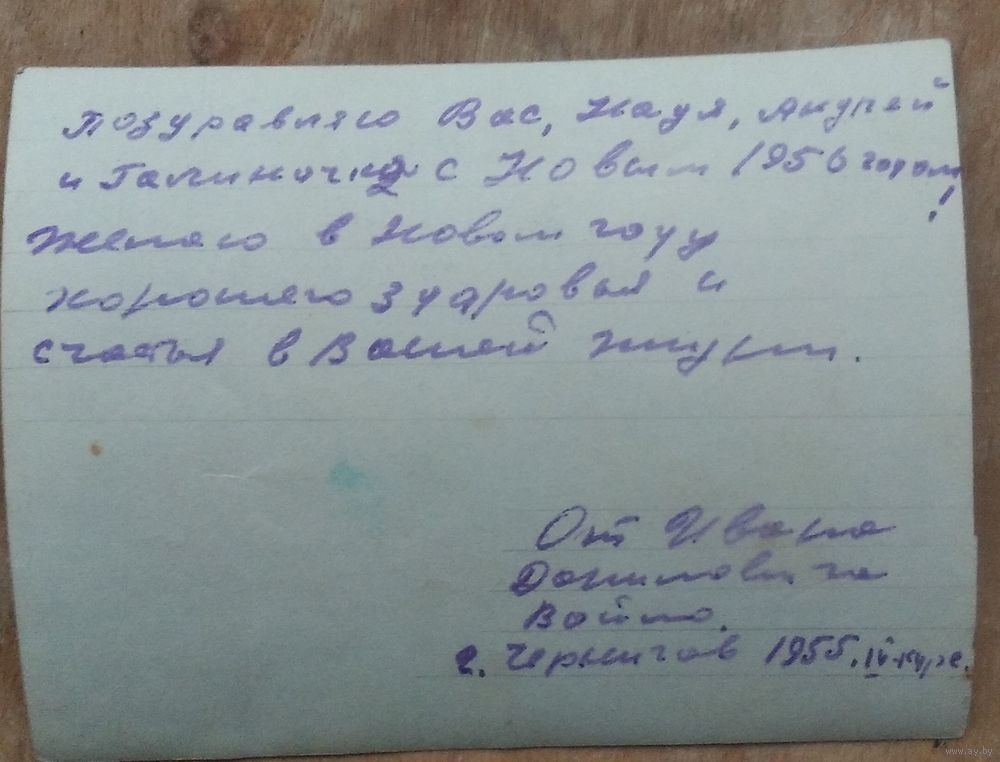 Поздравляю Вас, Надя, Андрей
и Галиночка с Новым 1956 годом
!
Желаю в Новом году
хорошего здоровья и
счастья в Вашей жизни.
От Ивана
Даниловича
Войто.
г. Чернигов 1955. IV курс.
www.ay.by